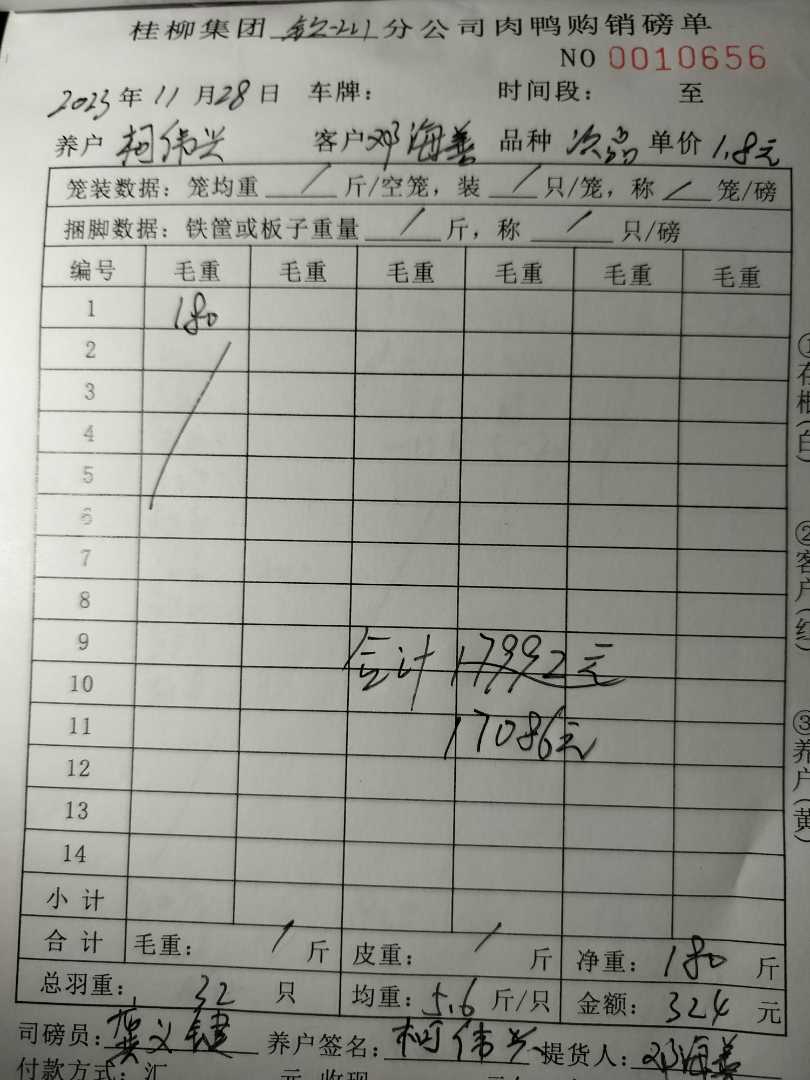 桂柳集团 钦州 分公司肉鸭购销磅单
NO 0010656
2023 年 11 月 28 日 车牌: 时间段: 至
养户 柯伟兴 客户 邓海善 品种 次品 单价 1.8元
笼装数据: 笼均重 / 斤/空笼, 装 / 只/笼, 称 / 笼/磅
捆脚数据: 铁筐或板子重量 / 斤, 称 / 只/磅
编号 毛重 毛重 毛重 毛重 毛重 毛重
1 180
2
3
4
5
6
7
8
9
合计 17992元
10
11
17086元
12
13
14
小计
合计 毛重: / 斤 皮重: / 斤 净重: 180 斤
总羽重: 32 只 均重: 5.6 斤/只 金额: 324 元
司磅员: 龚义键 养户签名: 柯伟兴 提货人: 邓海善
付款方式: 汇 元 收现
①存根(白)
②客户(红)
③养户(黄)